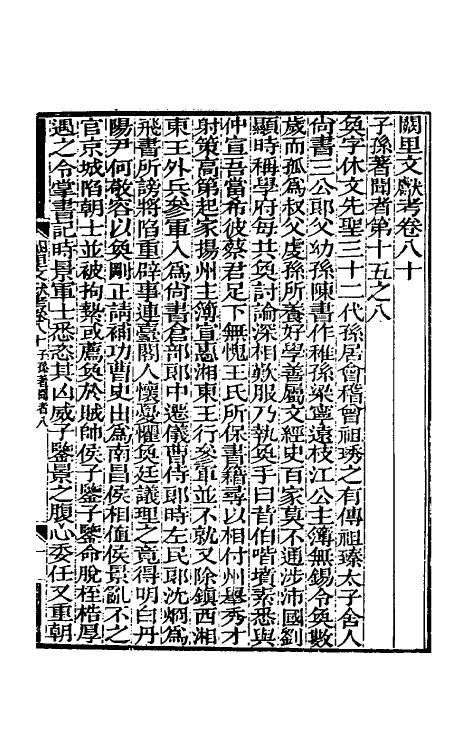 闕里文獻考卷八十
子孫著聞者第十五之八
奐字休文先聖三十二代孫居會稽曾祖琇之有傳祖臻太子舍人
尚書三公郎父幼孫陳書作稚孫梁寧遠枝江公主簿無錫令奐數
歲而孤為叔父虔孫所養好學善屬文經史百家莫不通涉沛國劉
顯時稱學府每共奐討論深相歎服乃執奐手曰昔伯喈墳素悉與
仲宣吾當希彼蔡君足下無愧王氏所保書籍尋以相付州舉秀才
射策高第起家揚州主簿宣惠湘東王行參軍並不就又除鎮西湘
東王外兵參軍入為尚書倉部郎中遷儀曹侍郎時左民郎沈炯為
飛書所謗將陷重辟事連臺閣人懷憂懼奐廷議理之竟得明白丹
陽尹何敬容以奐剛正請補功曹史出為南昌侯相值侯景亂不之
官京城陷朝士並被拘縶或薦奐於賊帥侯子鑒子鑒命脫桎梏厚
遇之令掌書記時景軍士悉恣其凶威子鑒景之腹心委任又重朝
闕里文獻考卷八十 子孫著聞者八
一